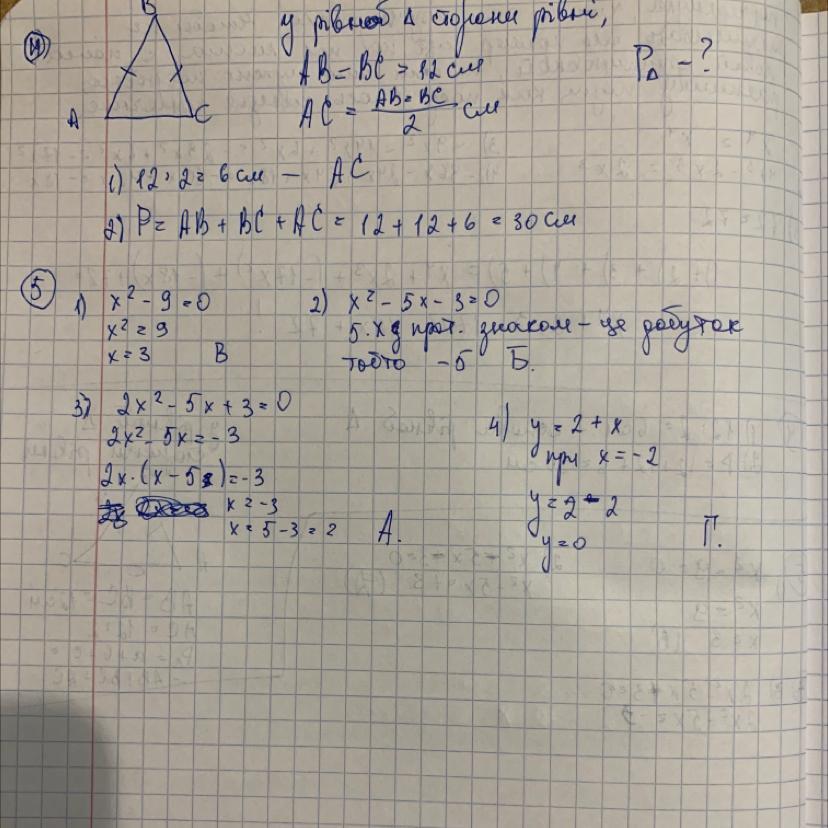 B
У рівноб Δ сторони рівні,
4
AB = BC = 12 см
P△ - ?
A
C
AC = AB = BC / 2 см
1) 12 : 2 = 6 см — AC
2) P = AB + BC + AC = 12 + 12 + 6 = 30 см
5
1) x² - 9 = 0
x² = 9
x = 3 В
2) x² - 5x - 3 = 0
5 · x з прот. знаком - це добуток
тобто -5 Б.
3) 2x² - 5x + 3 = 0
2x² - 5x = -3
2x · (x - 5) = -3
x = -3
x = 5 - 3 = 2 А.
4) y = 2 + x
при x = -2
y = 2 - 2
y = 0 Г.